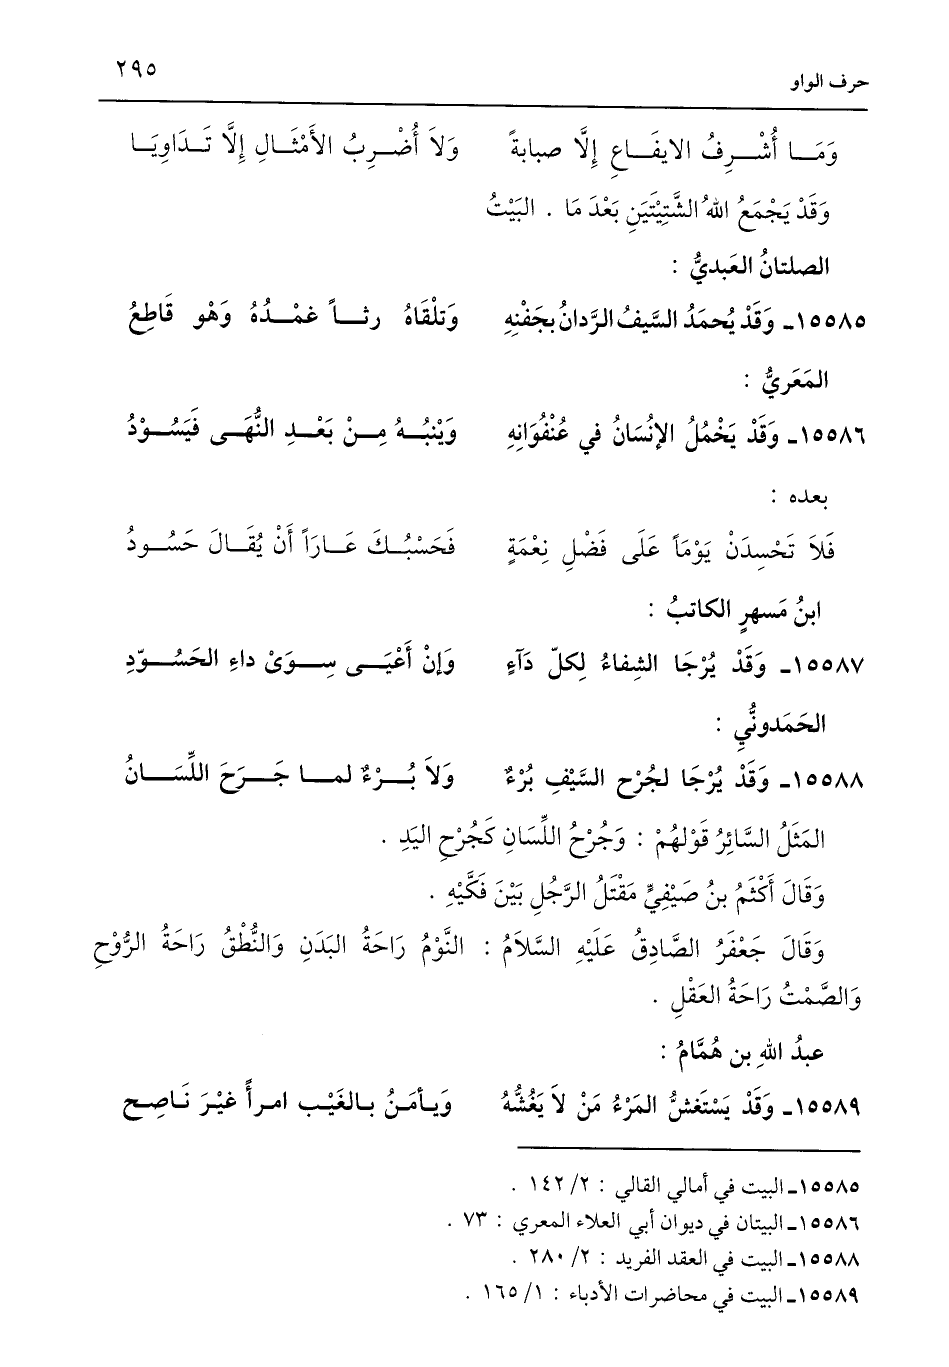 حرف الواو ٢٩٥
وَمَـــا أُشْـــرِفُ الايفَـــاعِ إِلَّا صبابةً وَلاَ أُضْـرِبُ الأَمْثَـالِ إِلَّا تَـدَاوِيَـا
وَقَدْ يَجْمَعُ اللهُ الشَّتِيْتَينِ بَعْدَ مَا . البَيْتُ
الصلتانُ العَبديُّ :
١٥٥٨٥ـ وَقَدْ يُحمَدُ السَّيفُ الرَّدانُ بجَفْنِهِ وَتلْقَاهُ رثـاً غمْـدُهُ وَهْو قَاطِعُ
المَعَريُّ :
١٥٥٨٦ـ وَقَدْ يَخْمُلُ الإنْسَانُ في عُنْفُوَانِهِ وَيَنْبُـهُ مِـنْ بَعْـدِ النُّهَـى فَيَسُـوْدُ
بعده :
فَلاَ تَحْسِدَنْ يَوْمَاً عَلَى فَضْلِ نِعْمَةٍ فَحَسْبُـكَ عَـارَاً أَنْ يُقَـالَ حَسُـودُ
ابنُ مَسهرٍ الكاتبُ :
١٥٥٨٧ـ وَقَدْ يُرْجَا الشِفاءُ لِكلّ دَآءٍ وَإنْ أَعْيَـى سِـوَىْ داءِ الحَسُـوّدِ
الحَمَدونُّيِ :
١٥٥٨٨ـ وَقَدْ يُرْجَا لجُرْح السَّيْفِ بُرْءٌ وَلاَ بُـرْءٌ لمـا جَـرَحَ اللِّسَـانُ
المَثَلُ السَّائِرُ قَوْلهُمْ : وَجُرْحُ اللِّسَانِ كَجُرْحِ اليَدِ .
وَقَالَ أَكْثَمُ بنُ صَيْفِيٍّ مَقْتَلُ الرَّجُلِ بَيْنَ فَكَّيْهِ .
وَقَالَ جَعْفَرُ الصَّادِقُ عَلَيْهِ السَّلاَمُ : النَّوْمُ رَاحَةُ البَدَنِ وَالنُّطْقُ رَاحَةُ الرُّوْحِ
وَالصَّمْتُ رَاحَةُ العَقْلِ .
عبدُ اللهِ بن هُمَّامُ :
١٥٥٨٩ـ وَقَدْ يَسْتَغشُّ المَرْءُ مَنْ لاَ يَغُشُّهُ وَيـأمَـنُ بـالغَيْـب امـرأً غيْـرَ نَـاصِـحِ
١٥٥٨٥ـ البيت في أمالي القالي : ٢/ ١٤٢ .
١٥٥٨٦ـ البيتان في ديوان أبي العلاء المعري : ٧٣ .
١٥٥٨٨ـ البيت في العقد الفريد : ٢/ ٢٨٠ .
١٥٥٨٩ـ البيت في محاضرات الأدباء : ١/ ١٦٥ .